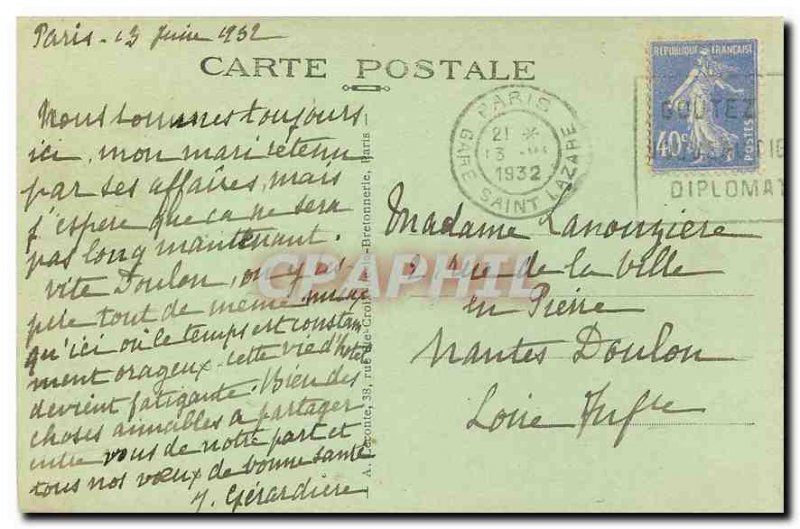 Paris - 13 Juin 1932
CARTE POSTALE
Nous sommes toujours
ici, mon mari retenu
par ses affaires, mais
j'espère que ça ne sera
pas long maintenant.
vite Doulon, on y
tout de même mieux
qu'ici où le temps est constam
ment orageux. cette vie d'hotel
devient fatigante. Bien des
choses aimables à partager
entre vous de notre part et
tous nos vœux de bonne santé
J. Gérardière
A. Leconte, 38, rue Ste-Croix-de-la-Bretonnerie, Paris
PARIS
GARE SAINT LAZARE
21 *
13 - VI
1932
REPUBLIQUE FRANÇAISE
40c
POSTES
GOUTEZ
DIPLOMAT
Madame Lanouzière
Rue de la Ville
en Pierre
Nantes Doulon
Loire Infre
CPAPHIL